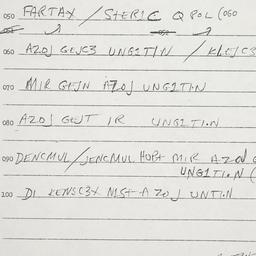 050 FARTAX / STERIC Q POL (060
060 AZOJ GEJC3 UNG1TIN / KLEJC3
070 MIR GEJN AZOJ UNG1TIN
080 AZOJ GEJT IR UNG1TIN
090 DENCMUL / JENCMUL HOPA MIR AZOJ
UNG1TIN (
100 DI KENSC3X NIST A ZOJ UNTIN